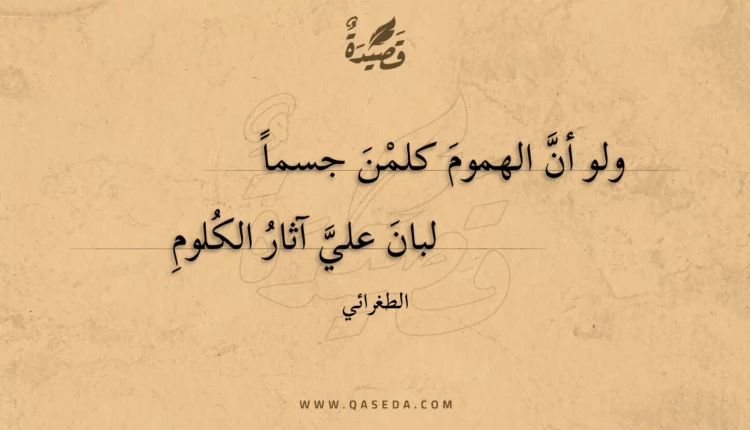 قَصِيْدَةٌ
ولو أنَّ الهمومَ كلمْنَ جسماً
لبانَ عليَّ آثارُ الكُلومِ
الطغرائي
WWW.QASEDA.COM